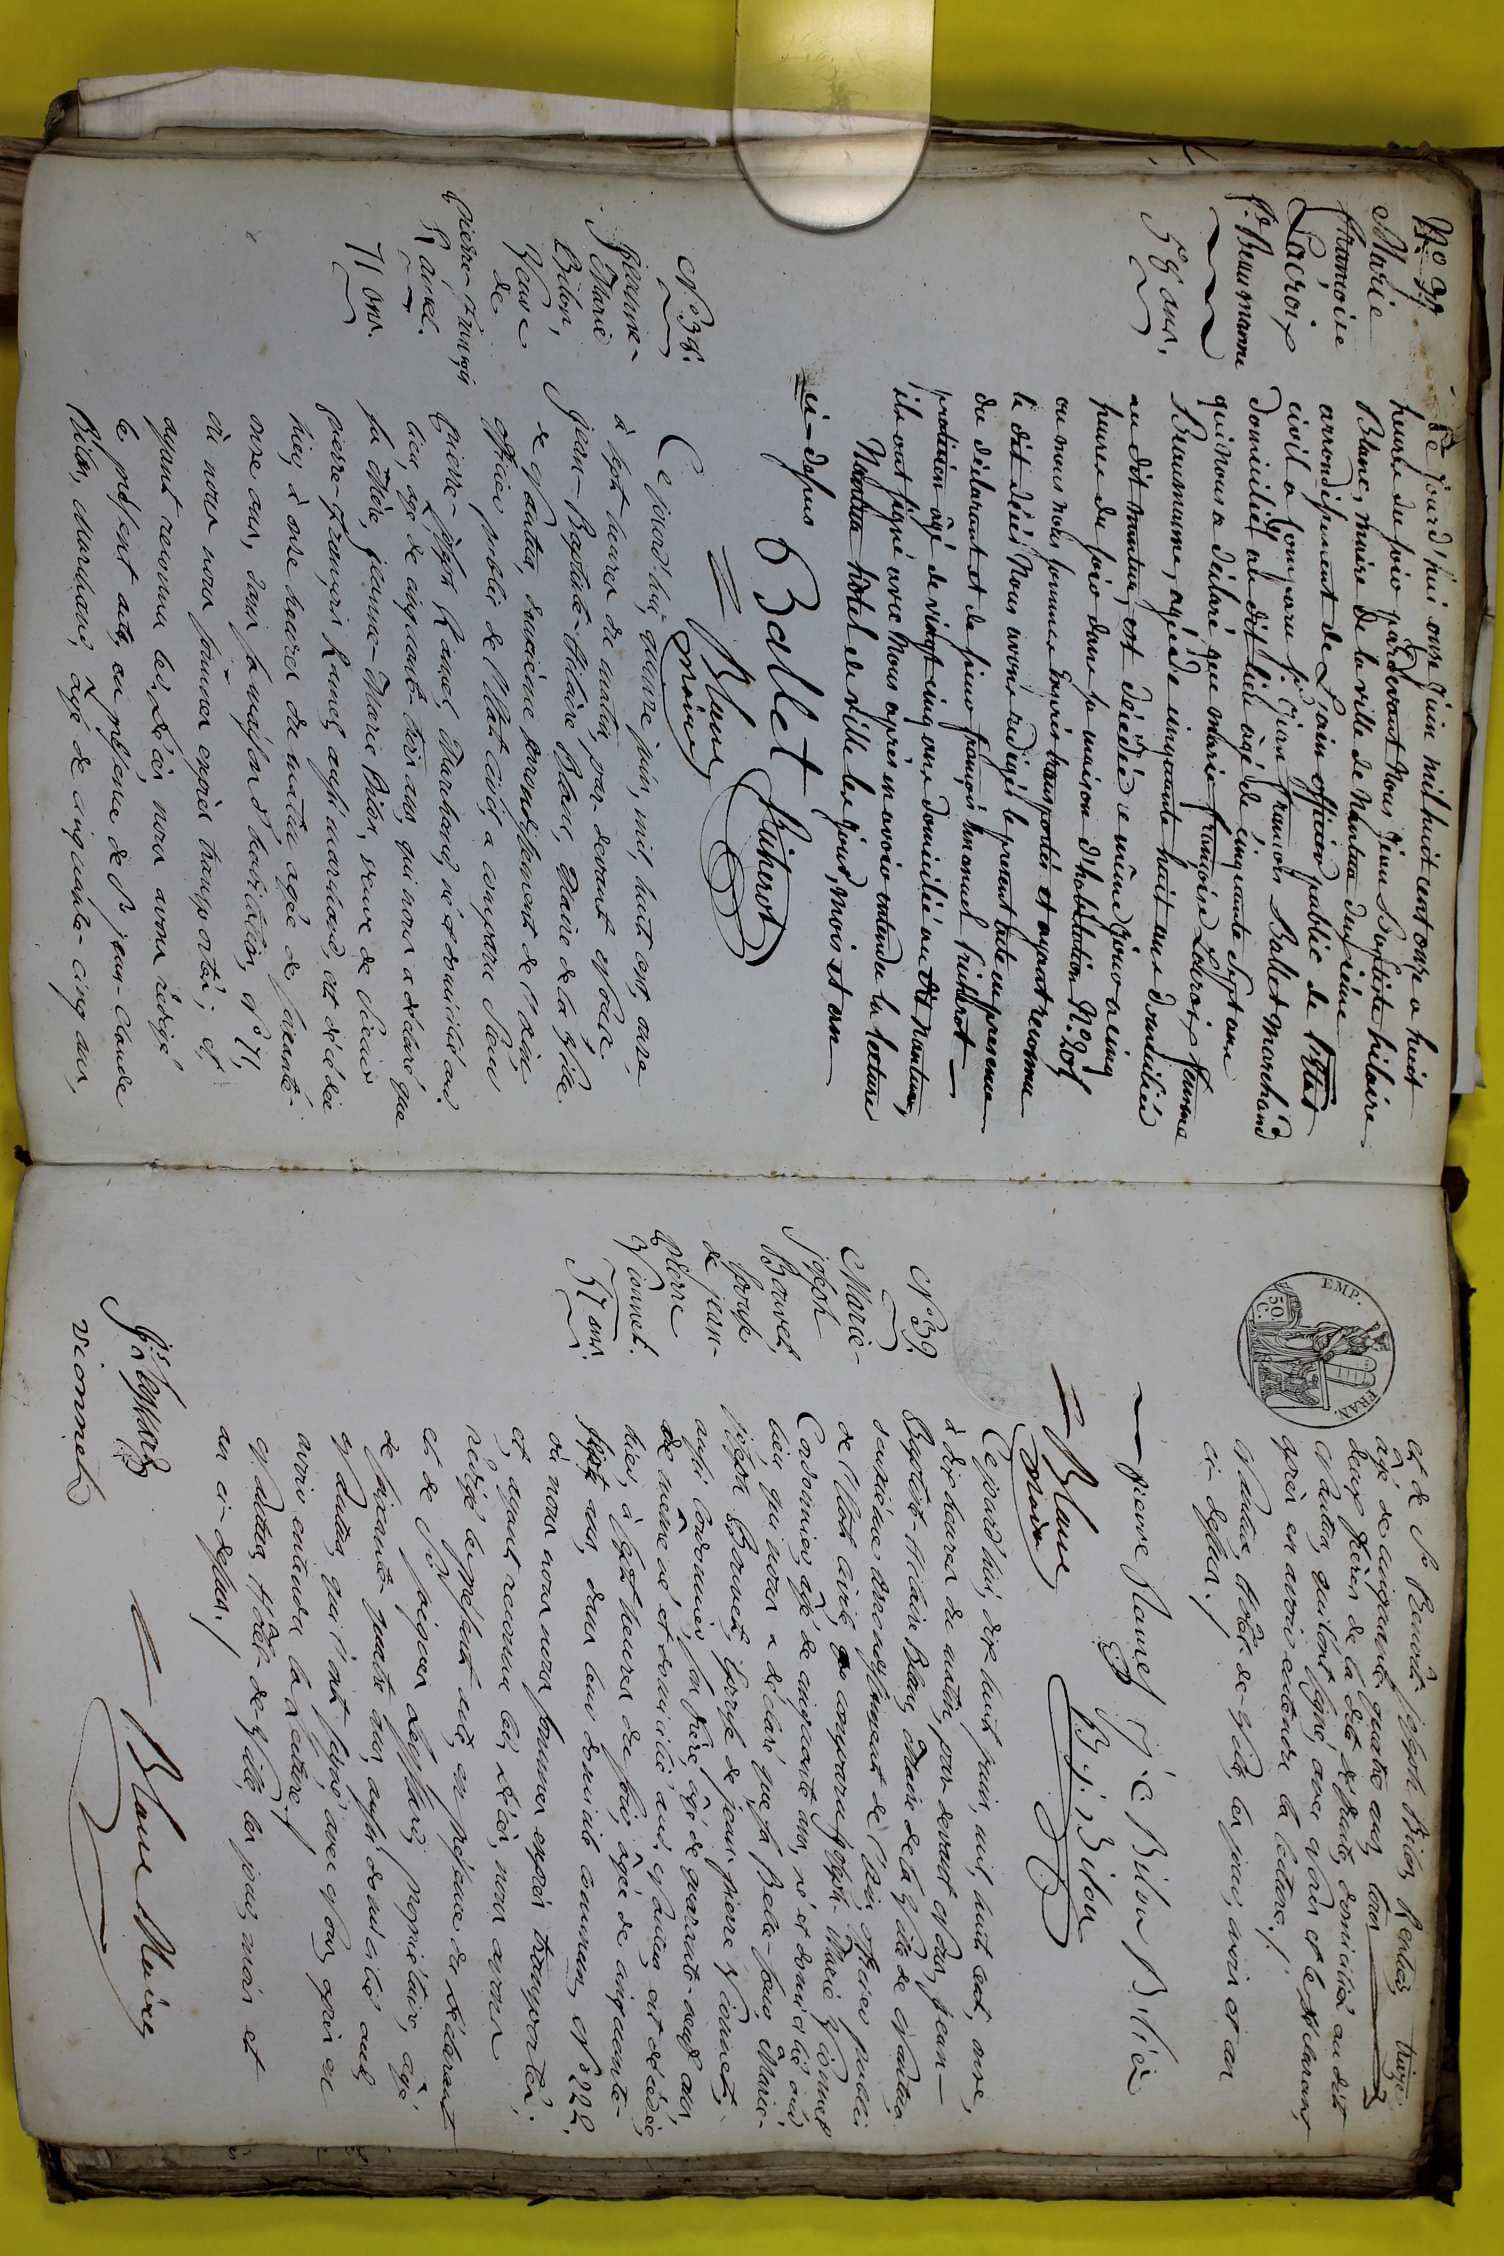 N.º 37.
Marie
francoise
Lacroix
f.e Beaumanne
58 ans.
Ce jourd'hui onze juin mil huit cent onze a huit
heures du soir par devant Nous Jean Baptiste hilaire
Blanc, maire de la ville de Nantua deuxième
arrondissement de L'ain officier public de l'Etat
civil a comparu s.r Jean francois Ballet marchand
domicilié au dit lieu agé de cinquante sept ans
qui nous a déclaré que marie francoise Lacroix femme
Beaumanne, agée de cinquante huit ans domiciliée
au dit nantua, est décédée ce même jour a cinq
heures du soir dans sa maison d'habitation N.º 208
ou nous nous sommes exprès transportés et ayant reconnu
le dit décès Nous avons redigé le present acte en presence
du déclarant et de sieur françois emanuel
praticien agé de vingt cinq ans domicilié au dit nantua,
ils ont signé avec Nous après en avoir entendu la lecture
Nantua hôtel de ville les jour, mois et an
ci-dessus
Ballet
Blanc
maire
N.º 38.
Jeanne-
Marie
Bilon,
Veuve
de
pierre-François
Ravel.
71 ans.
Ce jourd'hui, quinze juin, mil, huit cent, onze,
à sept heures du matin, par devant Nous,
Jean-Baptiste-hilaire Blanc, Maire de la Ville
de Nantua, deuxième arrondissement de l'ain
officier public de l'Etat civil, a comparu Sieur
pierre-Joseph Ravel, Marchand, né et domicilié aud.
lieu, agé de cinquante trois ans, qui nous a déclaré que
sa Mère, jeanne-Marie Bilon, veuve de Sieur
pierre-François Ravel, aussi marchand, est décédée
hier, à onze heures du matin agée de soixante-
onze ans, dans sa maison d'habitation, N.º 71,
où nous nous sommes exprès transportés; et
ayant reconnu led. décès, nous avons rédigé
le présent acte en présence de S.r jean-Claude
Bilon, Marchand, agé de cinquante-cinq ans,
EMP. FRAN.
50 C.
et de S.r Benoît joseph Bilon Rentier,
agé de cinquante quatre ans, tous
deux frères de la dite défunte, domiciliés audit
Nantua, qui l'ont signé, avec Nous et le déclarant,
après en avoir entendu la lecture./.
Nantua, hôtel de Ville, les jour, mois et an
ci-dessus./
pierre Ravel J. C Bilon
Blanc
Maire
B. j. Bilon
N.º 39.
Marie-
Joseph
Bouvet,
de jean-
pierre
Vionnet.
57 ans.
Ce jourd'hui, dix huit juin, mil, huit cent, onze,
à dix heures du matin, par devant Nous, jean-
Baptiste-hilaire Blanc, Maire de la Ville de Nantua,
deuxième arrondissement de l'ain, officier public
de l'Etat civil, a comparu Joseph-Marie Vionnet
Cordonnier, agé de cinquante ans, né et domicilié aud.
lieu, qui nous a déclaré que sa Belle-Soeur, Marie-
joseph Bouvet, de jean-pierre Vionnet,
aussi Cordonnier, son frère, agé de quarante-neuf ans,
de même né, et domicilié aud. Nantua, est décédée,
hier, à sept heures du soir, agée de cinquante-
sept ans, dans leur domicile commun, N.º 222.
où nous nous sommes exprès transportés;
et, ayant reconnu led. décès, nous avons
rédigé le présent acte, en présence du déclarant
et de S.r propriétaire, agé
de soixante quatre ans, aussi domicilié aud.
Nantua, qui l'ont signé, avec Nous, après en
avoir entendu la lecture./
Nantua, Hôtel de Ville, les jour, mois et
an ci-dessus./
vionnet
Blanc Maire